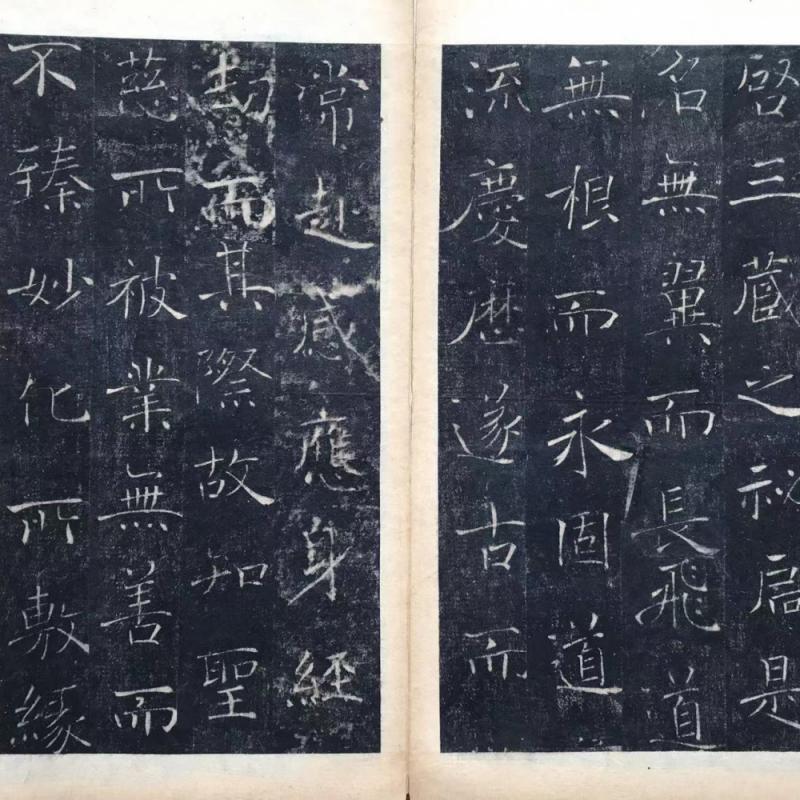 啓三蔵之祕扃是
名無翼而長飛道
無根而永固道
流慶歷遂古而
常赴感應身經
劫而其際故知聖
慈所被業無善而
不臻妙化所敷緣